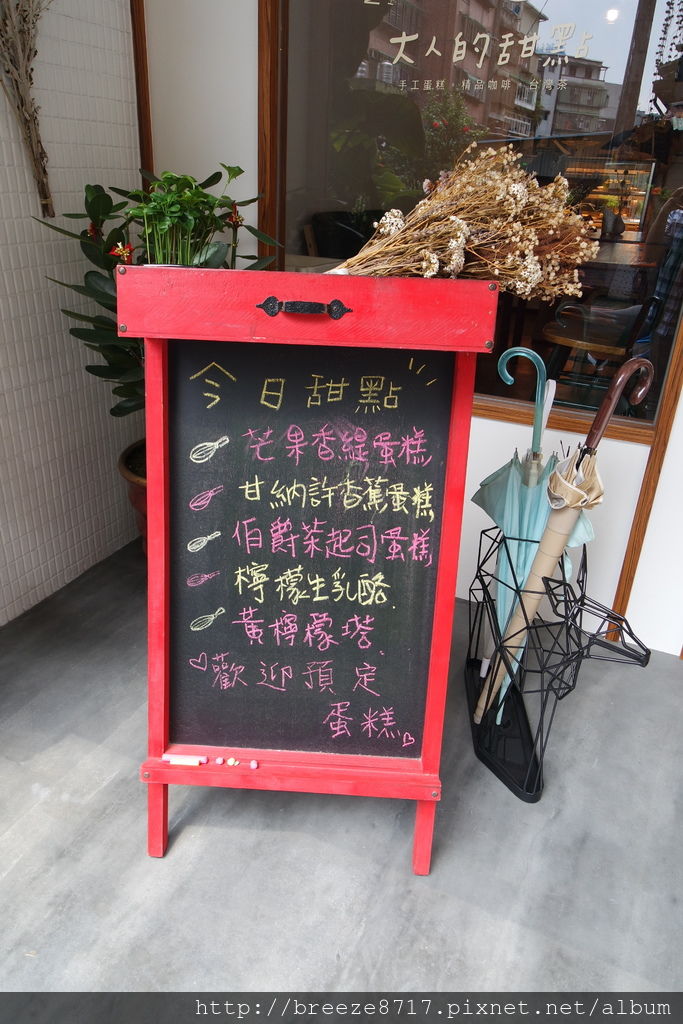 大人的甜點
手工蛋糕・精品咖啡・台灣茶
今日甜點
芒果香緹蛋糕
甘納許香蕉蛋糕
伯爵茶起司蛋糕
檸檬生乳酪
黃檸檬塔
歡迎預定
蛋糕
http://breeze8717.pixnet.net/album